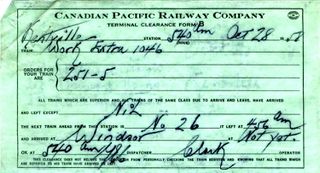 CANADIAN PACIFIC RAILWAY COMPANY
TERMINAL CLEARANCE FORM B
Kentville STATION 540 am Oct 28 1958
TRAIN Work Extra 1046
ORDERS FOR YOUR TRAIN ARE 251-5
ALL TRAINS WHICH ARE SUPERIOR AND ALL TRAINS OF THE SAME CLASS DUE TO ARRIVE AND LEAVE, HAVE ARRIVED
AND LEFT EXCEPT Nil
THE NEXT TRAIN AHEAD FROM THIS STATION IS No 26 IT LEFT AT 456 am
AND ARRIVED AT Windsor AT Not yet
OK AT 540 am DISPATCHER Clark OPERATOR
THIS CLEARANCE DOES NOT RELIEVE THE CONDUCTOR FROM PERSONALLY CHECKING THE TRAIN REGISTER AND KNOWING THAT ALL TRAINS WHICH